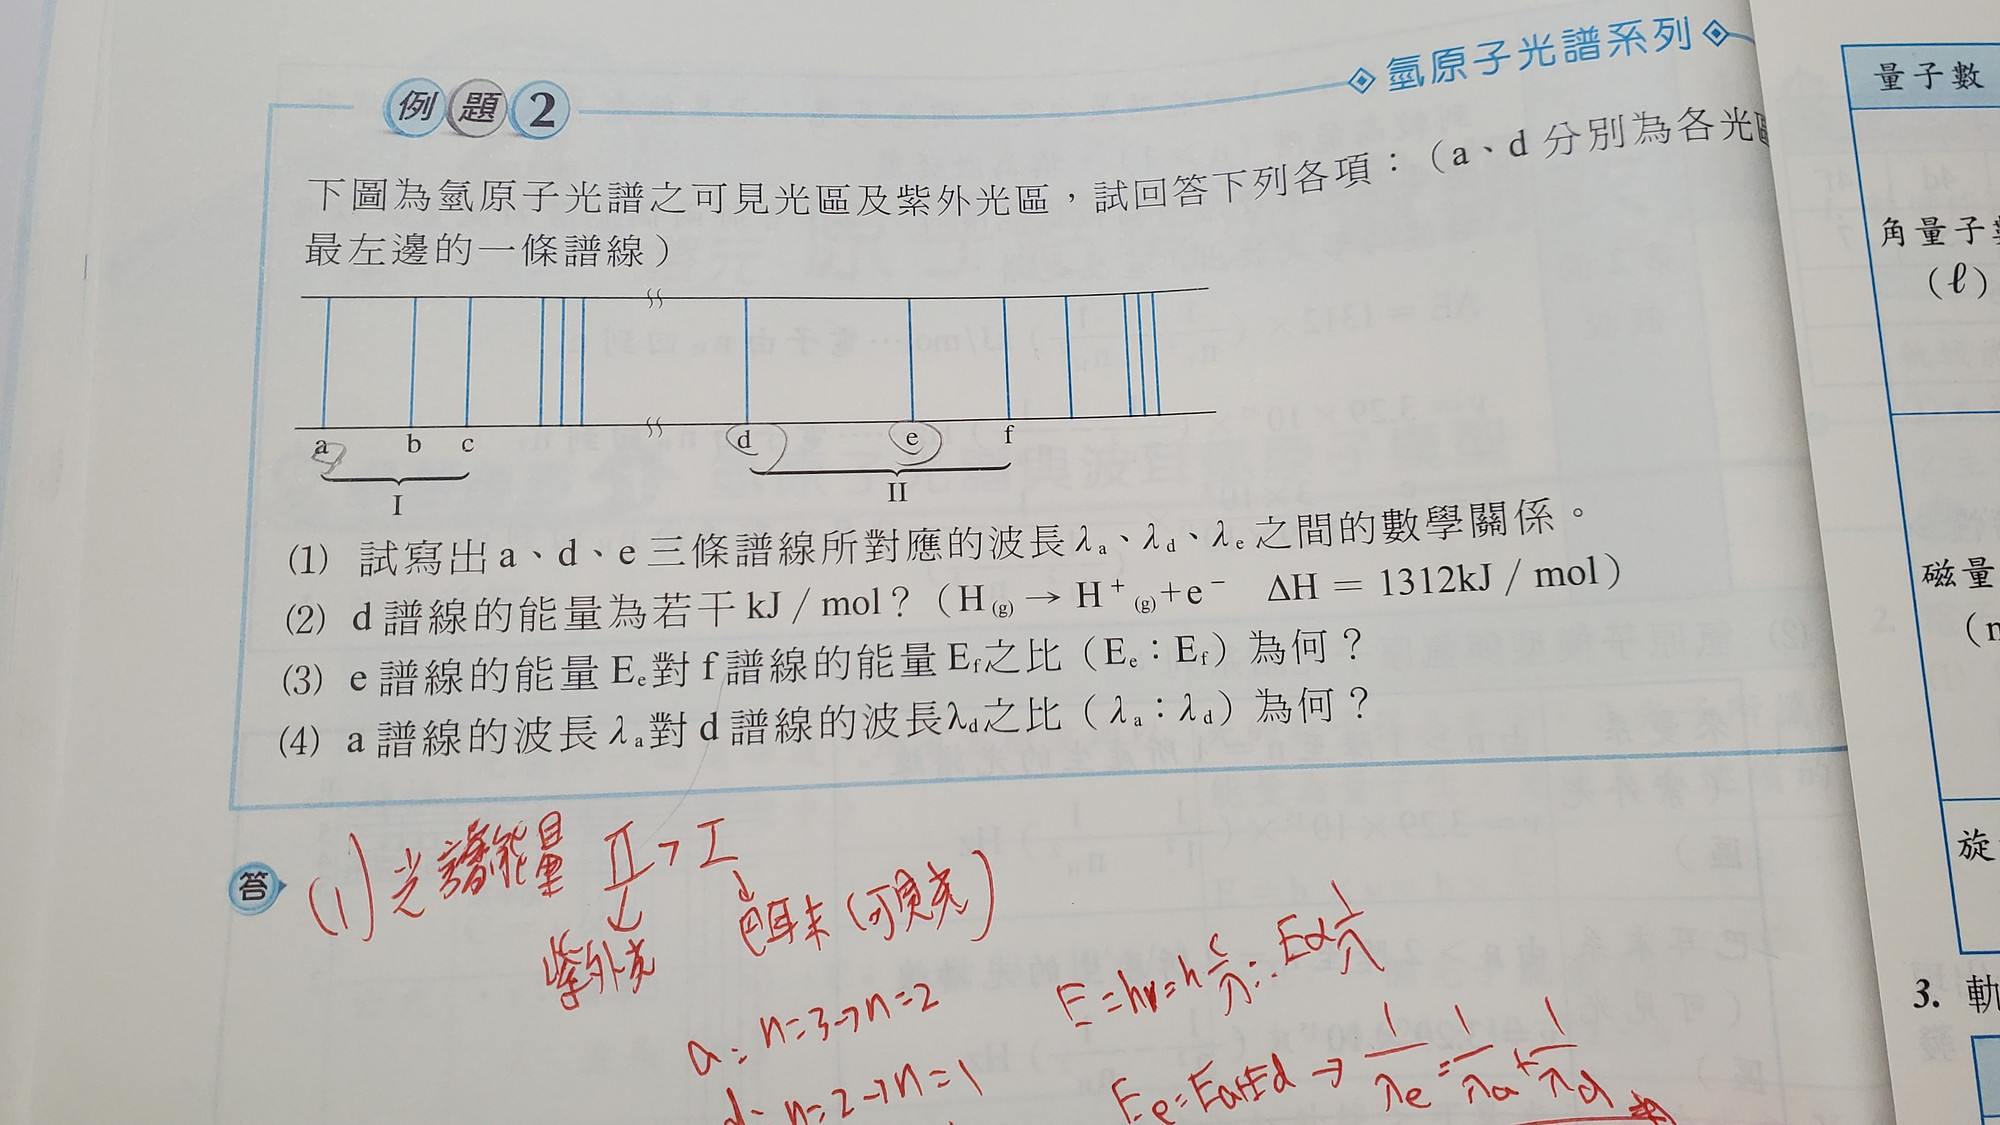 氫原子光譜系列
例題2
下圖為氫原子光譜之可見光區及紫外光區，試回答下列各項：（a、d 分別為各光
最左邊的一條譜線）
a b c d e f
I II
(1) 試寫出 a、d、e 三條譜線所對應的波長 λa、λd、λe 之間的數學關係。
(2) d 譜線的能量為若干 kJ／mol？（H(g) → H⁺(g)+e⁻ ΔH = 1312kJ／mol）
(3) e 譜線的能量 Ee對 f 譜線的能量 Ef之比（Ee：Ef）為何？
(4) a 譜線的波長 λa對 d 譜線的波長λd之比（λa：λd）為何？
答
(1) 光譜能量 II > I
紫外光
巴耳末(可見光)
a: n=3→n=2
d: n=2→n=1
E=hν=h c/λ ∴ E∝1/λ
Ee=Ea+Ed → 1/λe = 1/λa + 1/λd
量子數
角量子
(ℓ)
磁量
旋
3. 軌